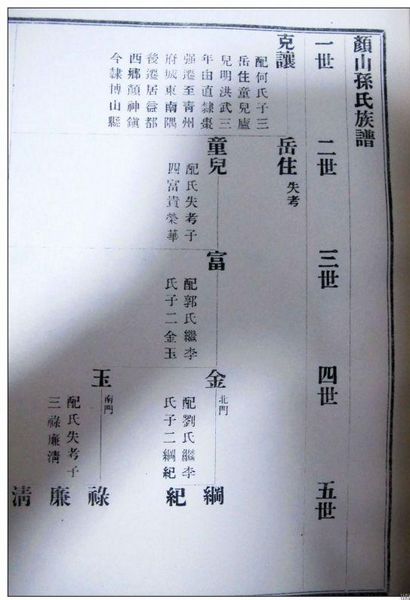 顏山孫氏族譜
一世
二世
三世
四世
五世
克讓
配何氏子三
岳住童兒廬
兒明洪武三
年由直隸棗
强遷至青州
府城東南隅
後遷居益都
西鄉顏神鎮
今隸博山縣
岳住
失考
童兒
配氏失考子
四富貴榮華
富
配郭氏繼李
氏子二金玉
金
北門
配劉氏繼李
氏子二綱紀
綱
紀
玉
南門
配氏失考子
三祿廉清
祿
廉
清